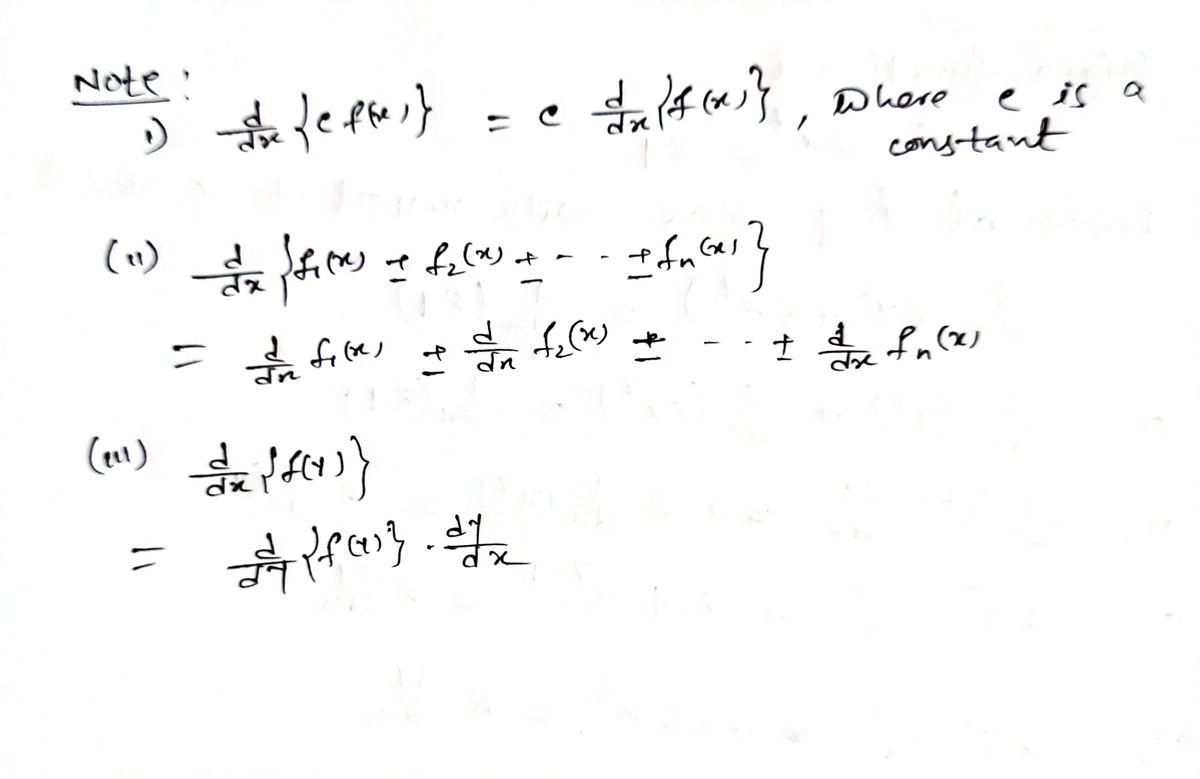 Note:
i) d/dx {c f(x)} = c d/dx {f(x)}, where c is a
constant
(ii) d/dx {f₁(x) ± f₂(x) ± - - ± fₙ(x)}
= d/dx f₁(x) ± d/dx f₂(x) ± - - ± d/dx fₙ(x)
(iii) d/dx {f(y)}
= d/dy {f(y)} . dy/dx